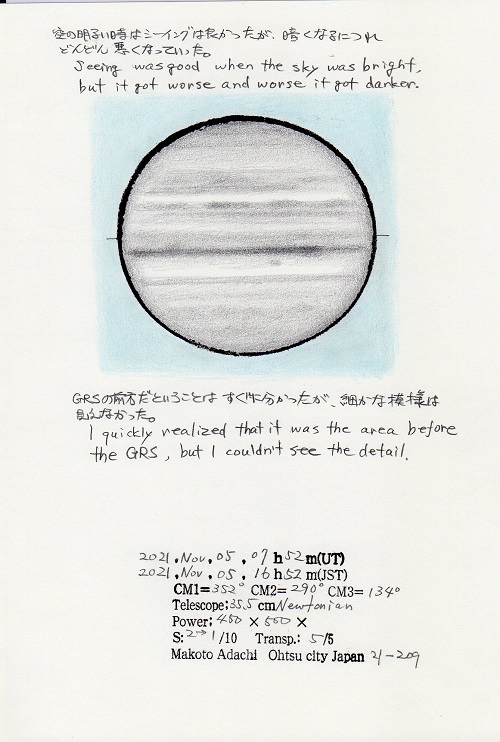 空の明るい時はシーイングは良かったが、暗くなるにつれ
どんどん悪くなっていった。
Seeing was good when the sky was bright,
but it got worse and worse it got darker.
GRSの前方だということはすぐに分かったが、細かな模様は
見えなかった。
I quickly realized that it was the area before
the GRS, but I couldn't see the detail.
2021, Nov, 05, 07 h 52 m(UT)
2021, Nov, 05, 16 h 52 m(JST)
CM1=352° CM2=290° CM3=134°
Telescope;35.5 cm Newtonian
Power; 450 × 500 ×
S: 2→1/10 Transp.: 5/5
Makoto Adachi Ohtsu city Japan 21-209